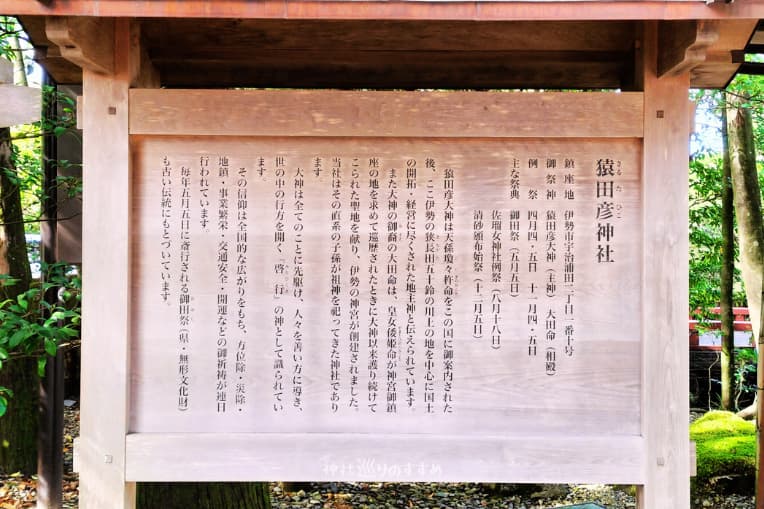 猿田彦神社
さるたひこ
鎮座地　伊勢市宇治浦田二丁目一番十号
御祭神　猿田彦大神（主神）大田命（相殿）
例　祭　四月四・五日　十一月四・五日
主な祭典　御田祭（五月五日）
佐瑠女神社例祭（八月十八日）
清砂頒布始祭（十二月五日）
猿田彦大神は天孫瓊々杵命をこの国に御案内された
後、ここ伊勢の狭長田五十鈴の川上の地を中心に国土
の開拓・経営に尽くされた地主神と伝えられています。
また大神の御裔の大田命は、皇女倭姫命が神宮御鎮
座の地を求めて巡歴されたときに大神以来護り続けて
こられた聖地を献り、伊勢の神宮が創建されました。
当社はその直系の子孫が祖神を祀ってきた神社であり
ます。
大神は全てのことに先駆け、人々を善い方に導き、
世の中の行方を開く「啓行」の神として識られてい
ます。
その信仰は全国的な広がりをもち、方位除・災除・
地鎮・事業繁栄・交通安全・開運などの御祈祷が連日
行われています。
毎年五月五日に斎行される御田祭（県・無形文化財）
も古い伝統にもとづいています。
神社巡りのすすめ